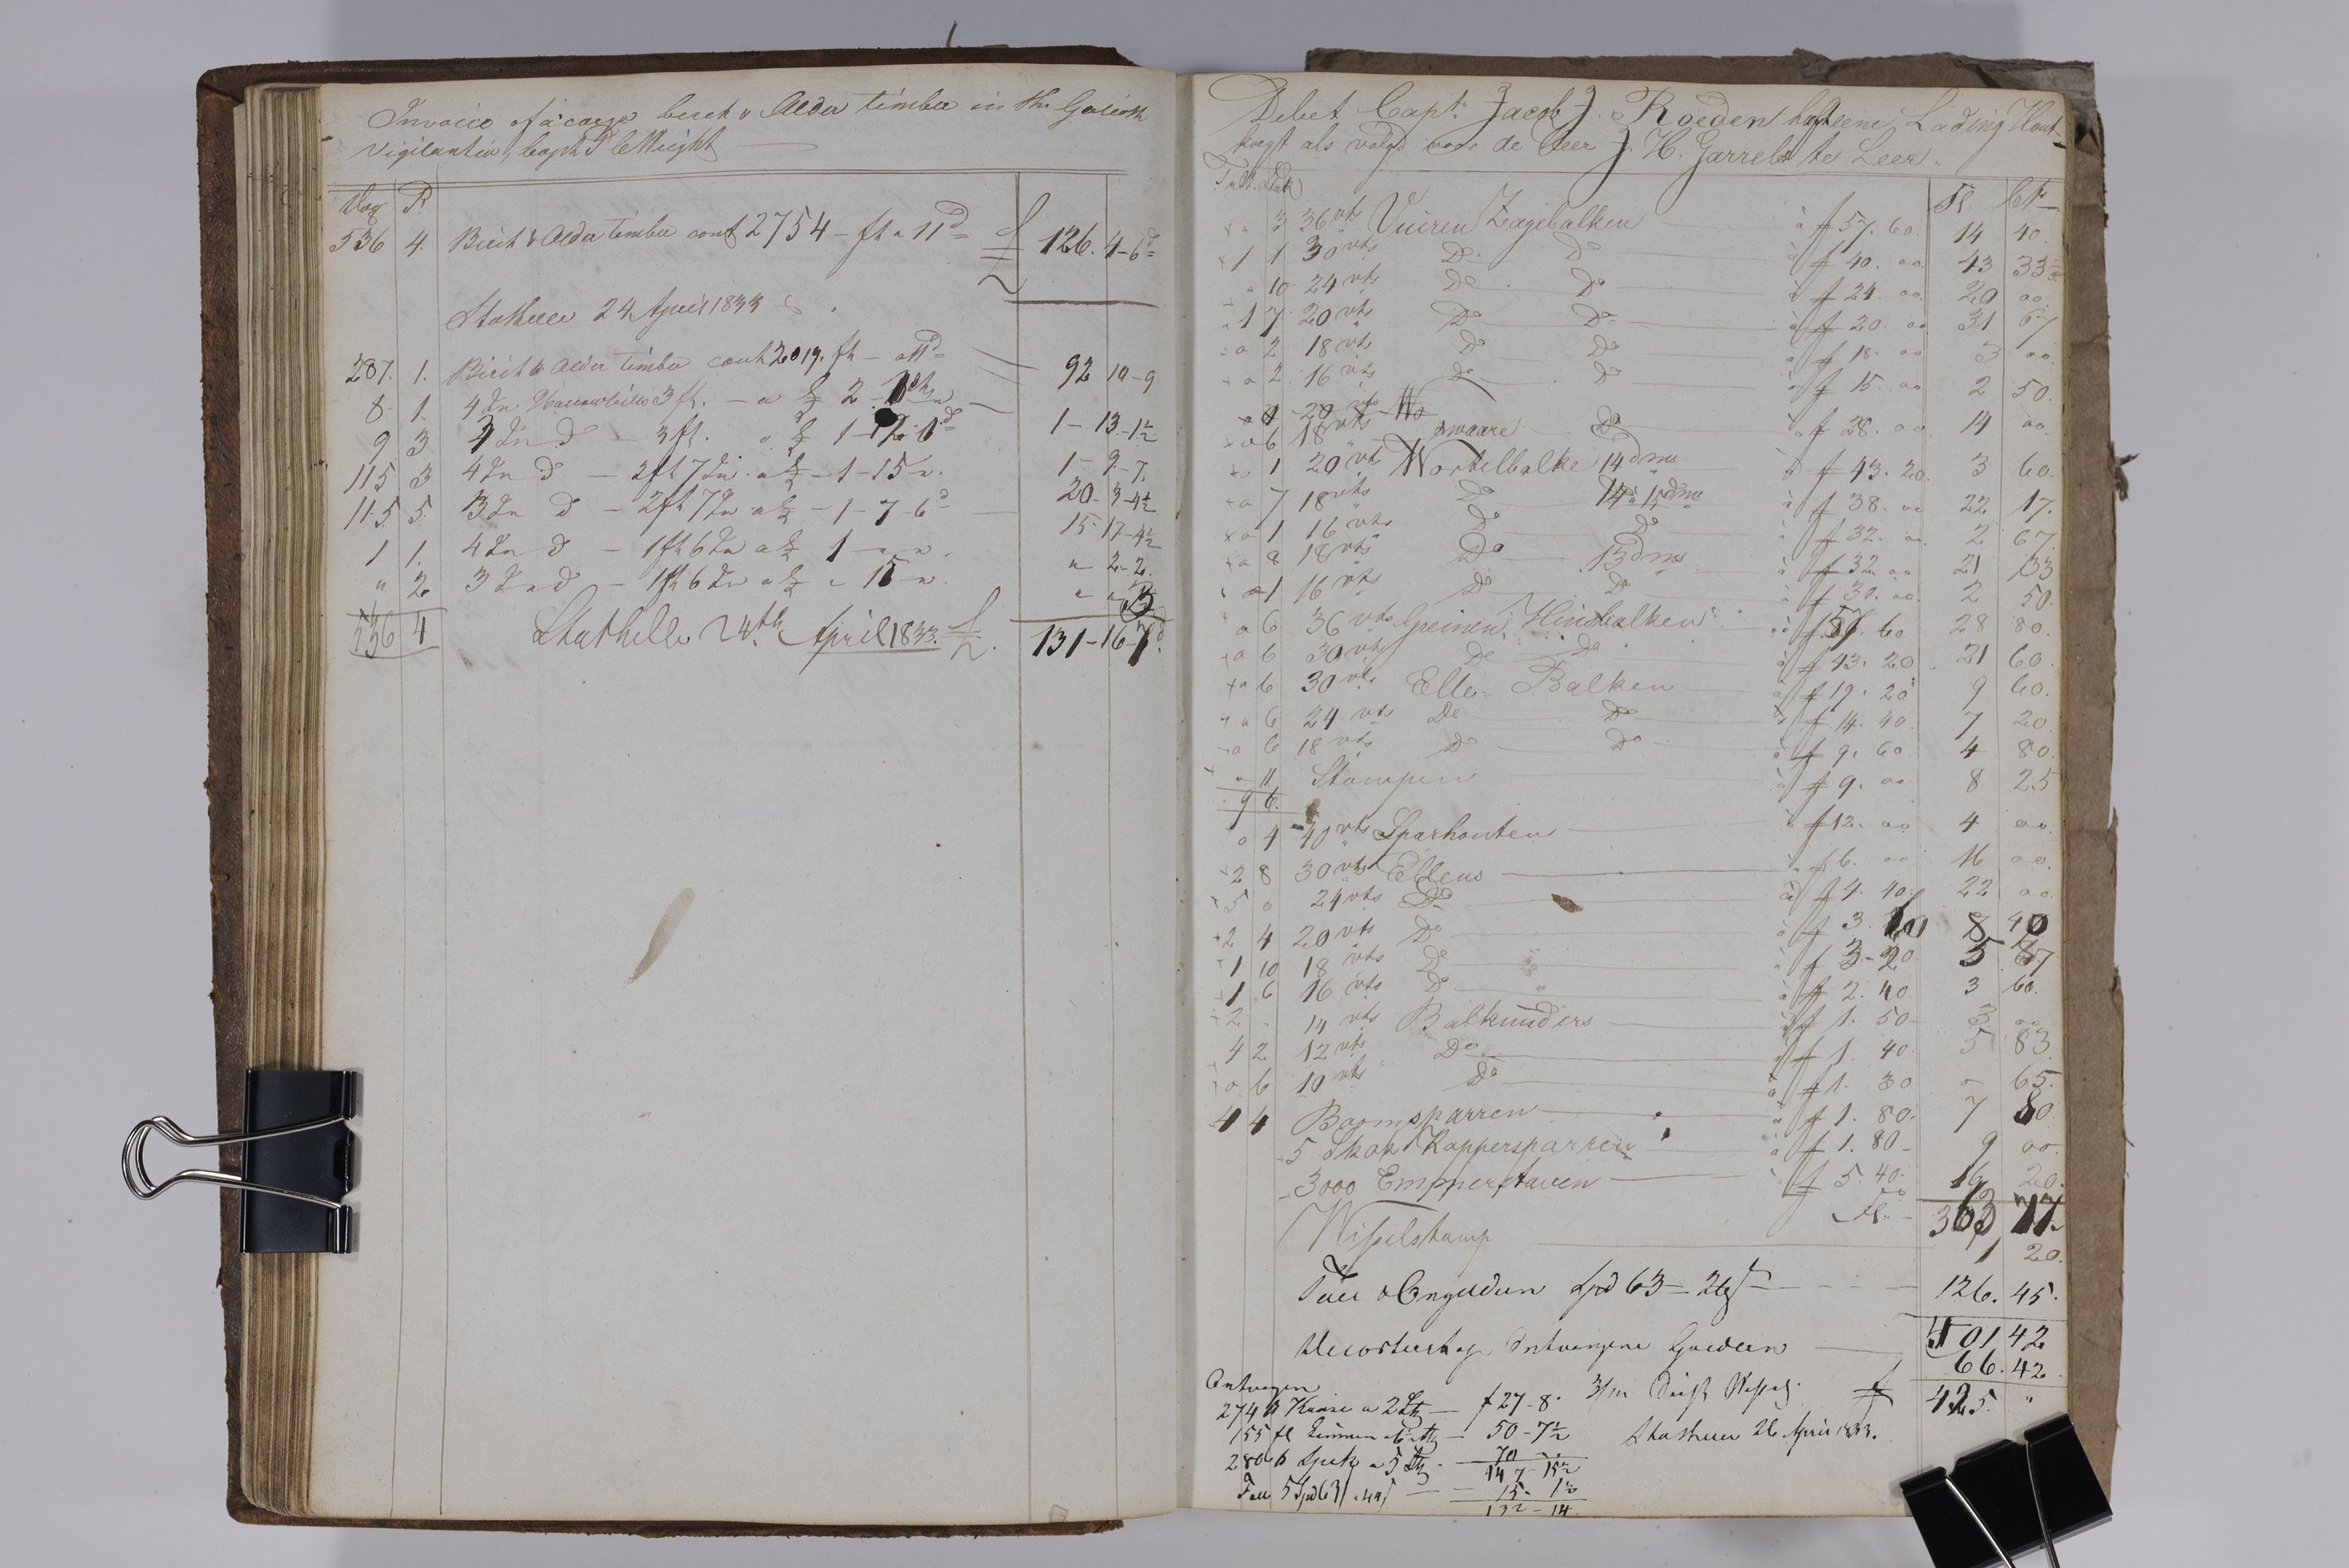 Invoice of a cargo birch & Alder timber in the Galioth
Vigilantia, Capt P C Wright
536 4. Birch & Alder timber cont 2754 ft a 11d £ 126. 4-6d
Stathelle 24 April 1833
287. 1. Birch & Alder timber cont 2019. ft a 11d 92 10-9
8 1. 4 In 3 ft. a £ 2 1-13-1½
9 3 3 In d 3 ft. " £ 1- 1-9-7.
115 3 4 In d 2 ft 7 In a £ 1-15 ". 20-3-4½
115 5 3 In d 2 ft 7 In a £ 1-7-6d 15-17-4½
1 1. 4 In d 1 ft 6 In a £ 1 " ". " 2-2.
" 2 3 In d 1 ft 6 In a £ " 15 ".
536 4 Stathelle 24th April 1833. £ 131-16-7d.
Debet Capt. Jacob J. Roeden haft eene Lading Hout
als volgt voor de Heer J. H. Garrels te Leer.
Fl. Ct
" 3 36 vts Vuiren Zagebalken à f 57. 60. 14 40.
1 1 30 vts Do Do à f 40. oo. 43 33
" 10 24 vts Do Do à f 24. oo. 20 oo.
1 7 20 vts Do Do à f 20. oo 31 67
o 2 18 vts Do Do à f 18. oo 3 oo.
o 2 16 vts Do Do à f 15. oo 2 50.
o 6 18 vts swaare Do à f 28. oo 14 oo.
" 1 20 vt Wortelbalke 14 dms à f 43. 20 3 60.
o 7 18 vts Do 14 à 15 dms à f 38. oo 22 17.
o 1 16 vts Do Do à f 32. oo. 2 67.
o 8 18 vts Do 13 dms à f 32 oo 21 33
o 1 16 vts Do Do à f 30. oo. 2 50.
o 6 36 vts Greinen Balken à f 57. 60 28 80.
o 6 30 vts Do Do à f 43. 20 21 60
o 6 30 vts Elle Balken à f 19. 20 9 60.
o 6 24 vts Do Do à f 14. 40 7 20
o 6 18 vts Do Do à f 9. 60 4 80.
" 11 Stompen à f 9. oo 8 25
9 6.
o 4 40 vts Sparhouten à f 12. oo 4 oo.
2 8 30 vts Ellens f 6. oo 16 oo.
5 o 24 vts Do à f 4. 40. 22 oo.
2 4 20 vts Do à f 3. 60 8 40
1 10 18 vts Do à f 3-20 5 87
1 6 16 vts Do à f 2. 40 3 60.
2 - 14 vts Balkunders à f 1. 50 3 oo
4 2 12 vts Do à f 1. 40 5 83.
o 6 10 vts Do à f 1. 30 - 65.
4 4 Boomsparren à f 1. 80. 7 80.
5 Skok Kappersparren à f 1. 80 9 oo.
3000 Emmerstaven à f 5. 40. 16 20.
Fl. 363 77.
Wisselstamp 1 20.
Toll & Ongelden Spd 63 126. 45.
Ontvangene Goederen 501 42
66. 42
Ontvangen f 425. "
274 ℔ f 27-8.
155 50-7½ Stathelle 26 April 1833.
280 ℔ Spek a 5 70
147-15½
15-1½
132-14.